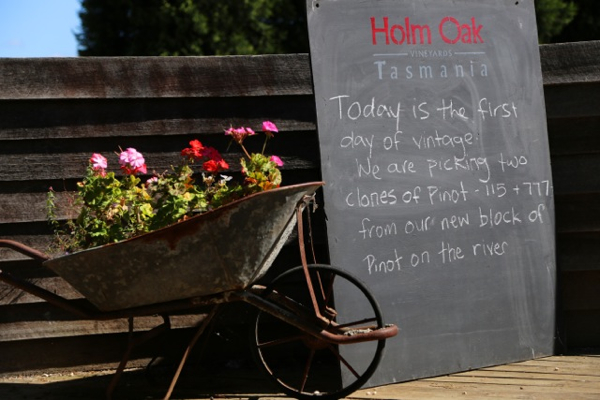 Holm Oak
VINEYARDS
Tasmania
Today is the first
day of vintage.
We are picking two
clones of Pinot - 115 + 777
from our new block of
Pinot on the river